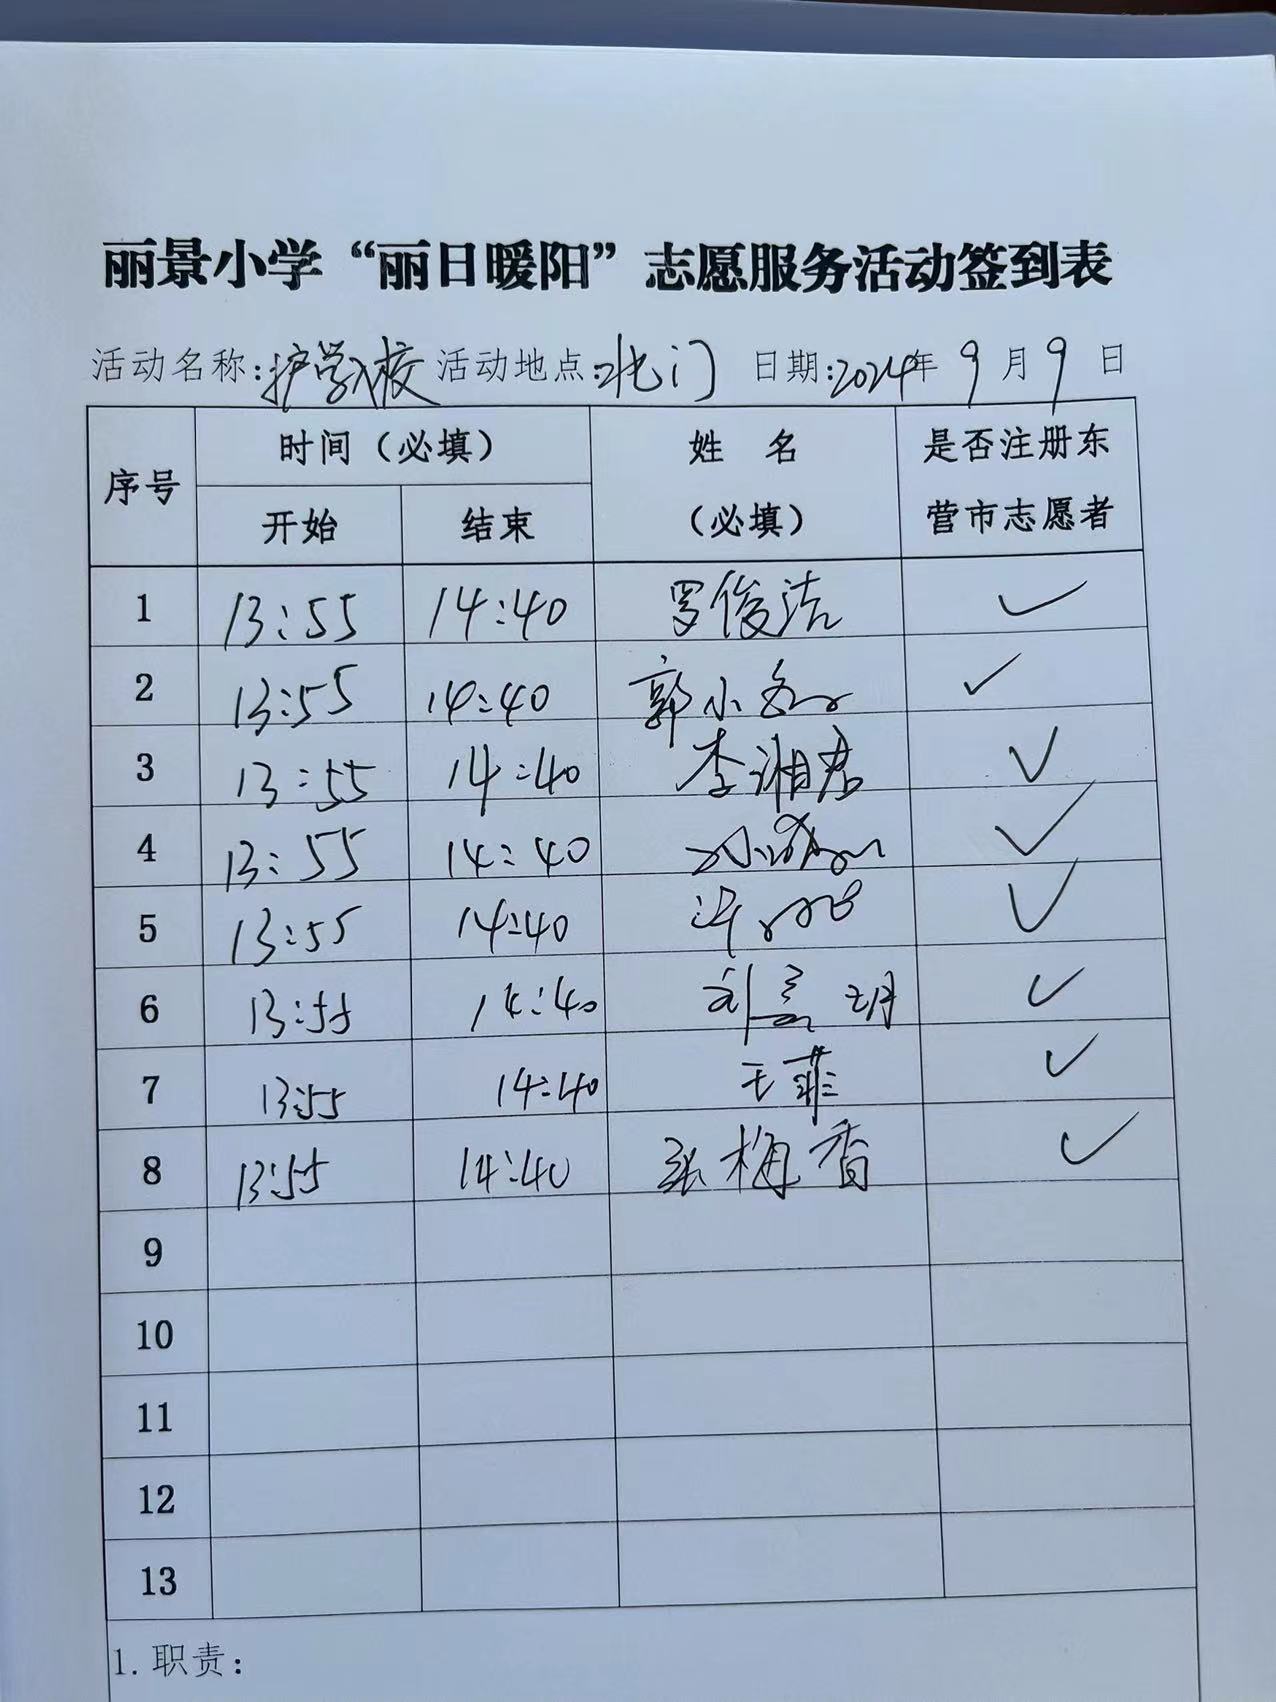 丽景小学“丽日暖阳”志愿服务活动签到表
活动名称:护学入校 活动地点:北门 日期:2024年9月9日
序号 时间（必填） 姓 名（必填） 是否注册东营市志愿者
开始 结束
1 13:55 14:40 罗俊洁 ✓
2 13:55 14:40 郭小 ✓
3 13:55 14:40 李湘君 ✓
4 13:55 14:40 ✓
5 13:55 14:40 ✓
6 13:55 14:40 刘孟玥 ✓
7 13:55 14:40 王菲 ✓
8 13:55 14:40 张梅香 ✓
9
10
11
12
13
1.职责：